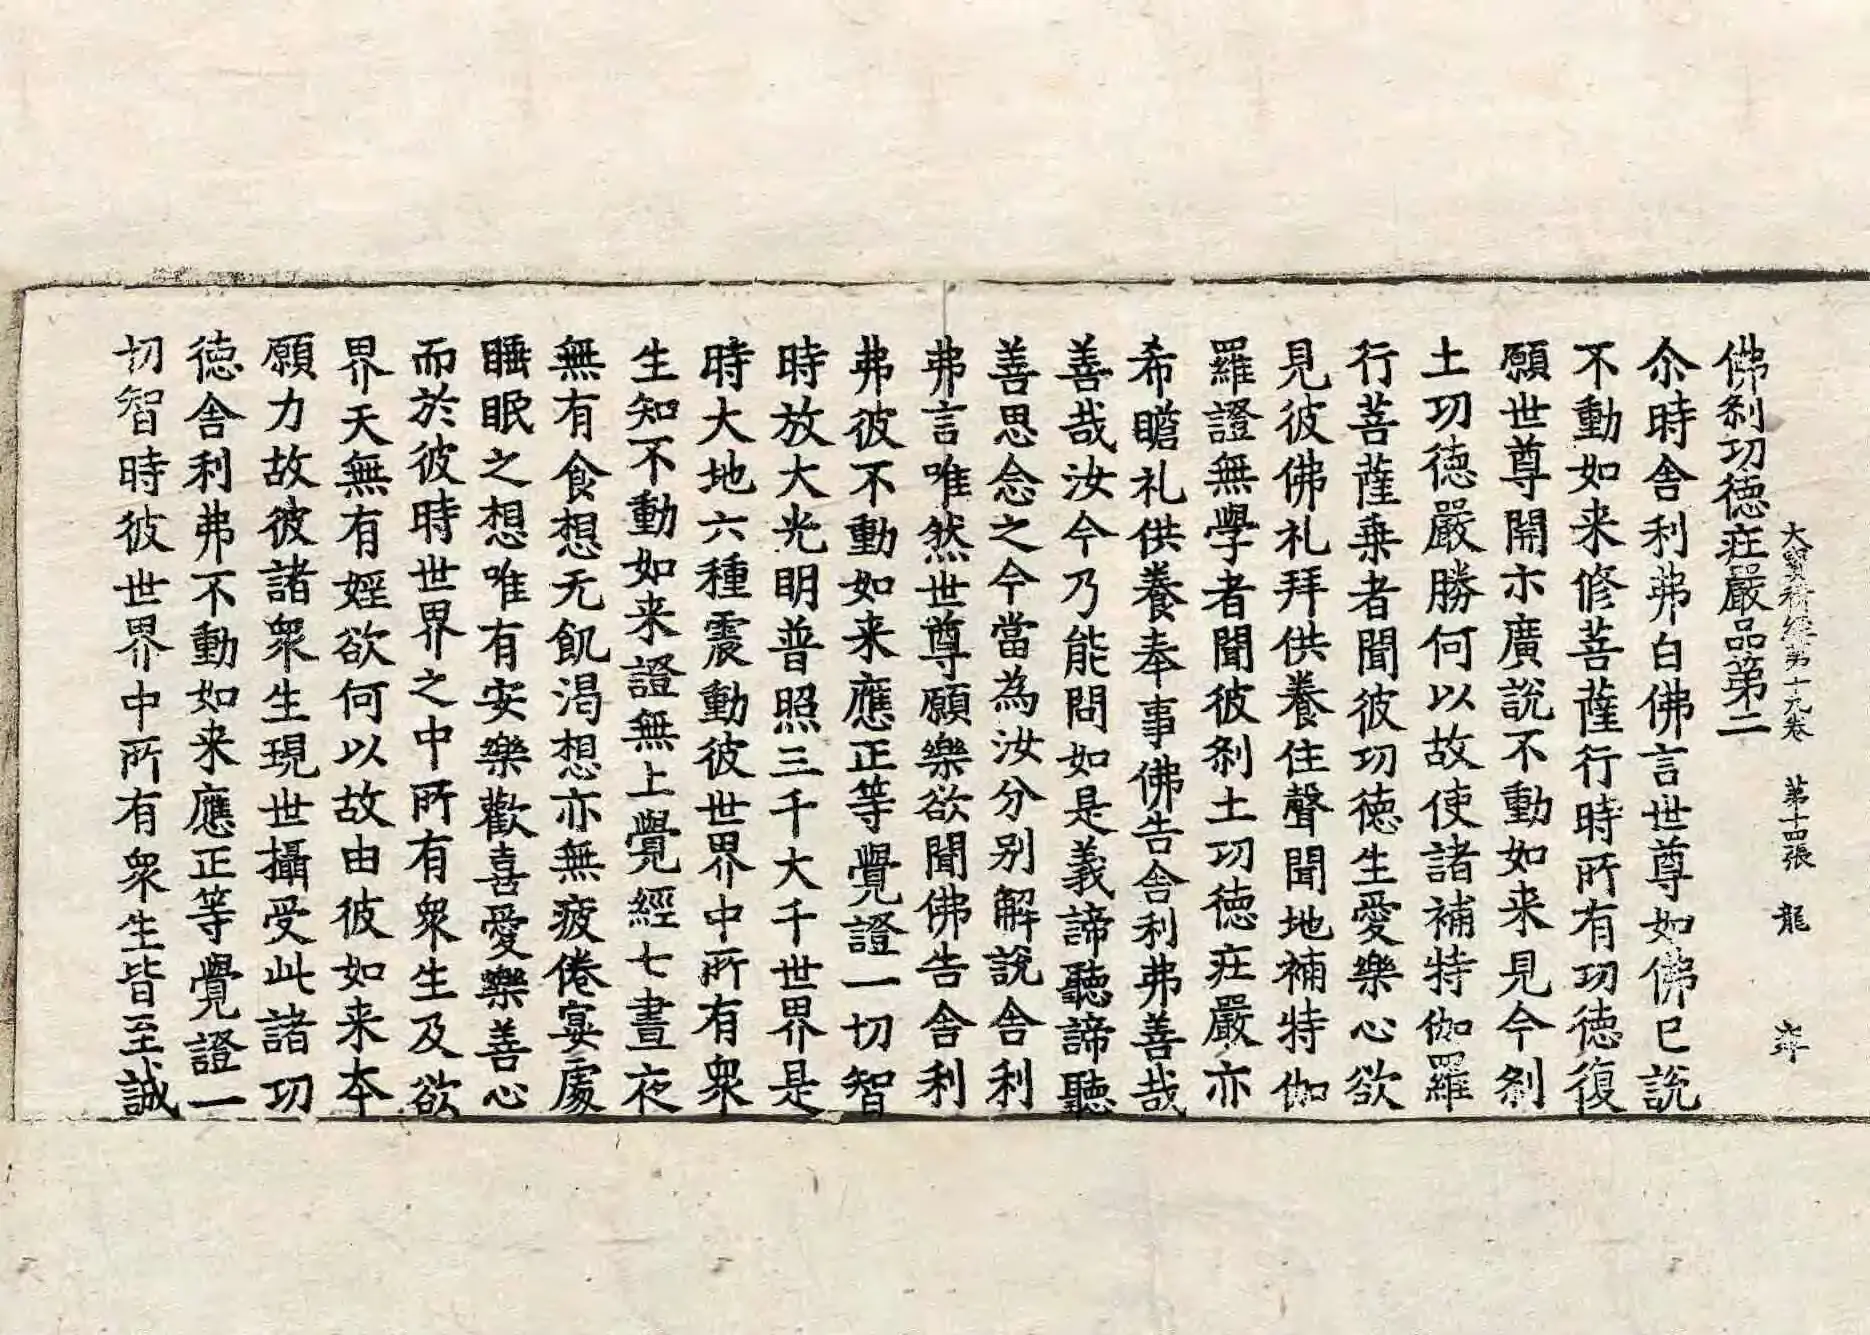 大寶積經第十九卷　第十四張　龍
佛刹功德莊嚴品第二
尒時舍利弗白佛言世尊如佛已說
不動如来修菩薩行時所有功徳復
願世尊開示廣說不動如来見今刹
土功徳嚴勝何以故使諸補特伽羅
行菩薩乗者聞彼功徳生愛樂心欲
見彼佛礼拜供養住聲聞地補特伽
羅證無學者聞彼刹土功徳莊嚴亦
希瞻礼供養奉事佛告舍利弗善哉
善哉汝今乃能問如是義諦聽諦聽
善思念之今當為汝分別解說舍利
弗言唯然世尊願樂欲聞佛告舍利
弗彼不動如来應正等覺證一切智
時放大光明普照三千大千世界是
時大地六種震動彼世界中所有衆
生知不動如来證無上覺經七晝夜
無有食想无飢渴想亦無疲倦宴處
睡眠之想唯有安樂歡喜愛樂善心
而於彼時世界之中所有衆生及欲
界天無有婬欲何以故由彼如来本
願力故彼諸衆生現世攝受此諸功
徳舍利弗不動如来應正等覺證一
切智時彼世界中所有衆生皆至誠